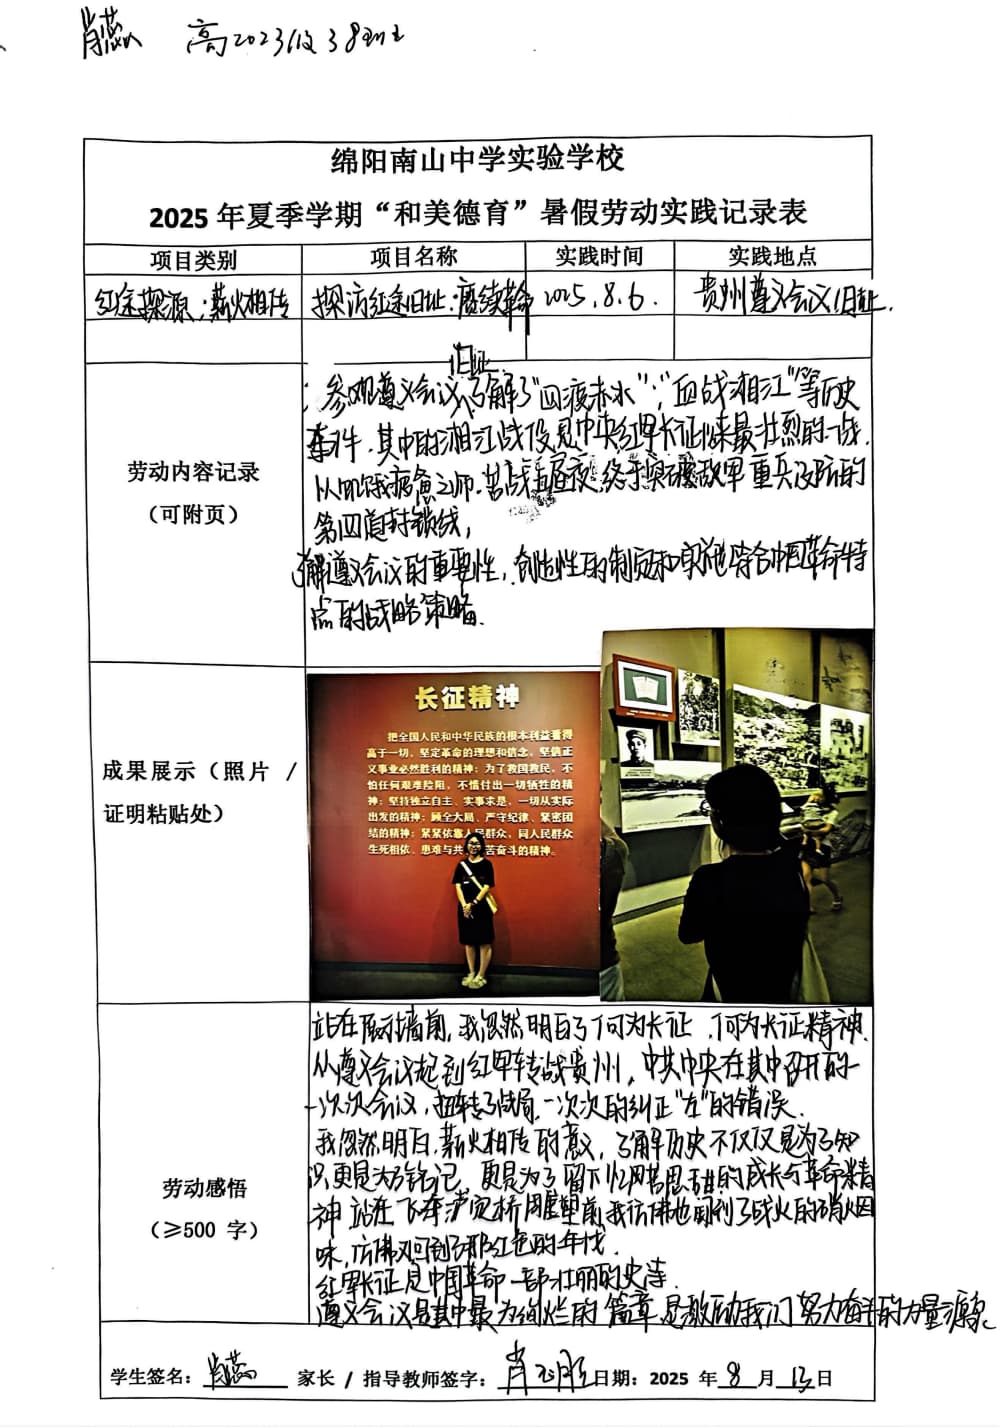 肖蕊 高2023级38班
绵阳南山中学实验学校
2025年夏季学期“和美德育”暑假劳动实践记录表
项目类别 项目名称 实践时间 实践地点
红途探源：薪火相传 探访红途旧址：赓续革命 2025.8.6. 贵州遵义会议旧址.
旧址
：参观遵义会议，了解了“四渡赤水”，“血战湘江”等历史
事件.其中的湘江战役是中央红军长征以来最壮烈的一战.
从饥饿疲惫之师.苦战五昼夜，终于突破敌军重兵设防的
第四道封锁线，
了解遵义会议的重要性，创造性的制定和实施符合中国革命特
点的战略策略.
劳动内容记录
（可附页）
长征精神
把全国人民和中华民族的根本利益看得
高于一切，坚定革命的理想和信念，坚信正
义事业必然胜利的精神；为了救国救民，不
怕任何艰难险阻，不惜付出一切牺牲的精
神；坚持独立自主、实事求是，一切从实际
出发的精神；顾全大局、严守纪律、紧密团
结的精神；紧紧依靠人民群众，同人民群众
生死相依、患难与共 苦奋斗的精神。
成果展示（照片 /
证明粘贴处）
站在展示墙前，我忽然明白了何为长征，何为长征精神.
从遵义会议起到红军转战贵州，中共中央在其中召开的一
一次次会议，扭转了战局，一次次的纠正“左”的错误.
我忽然明白，薪火相传的意义，了解历史不仅仅是为了知
识，更是为了铭记，更是为了留下忆苦思甜的成长与革命精
神 站在飞夺泸定桥雕塑前，我仿佛也闻到了战火的硝烟
味，仿佛又回到了那红色的年代.
红军长征是中国革命一部壮丽的史诗.
遵义会议是其中最为绚烂的篇章 是激励我们努力奋斗的力量源泉
劳动感悟
（≥500 字）
学生签名：肖蕊 家长 / 指导教师签字：肖 日期：2025 年 8 月 13 日